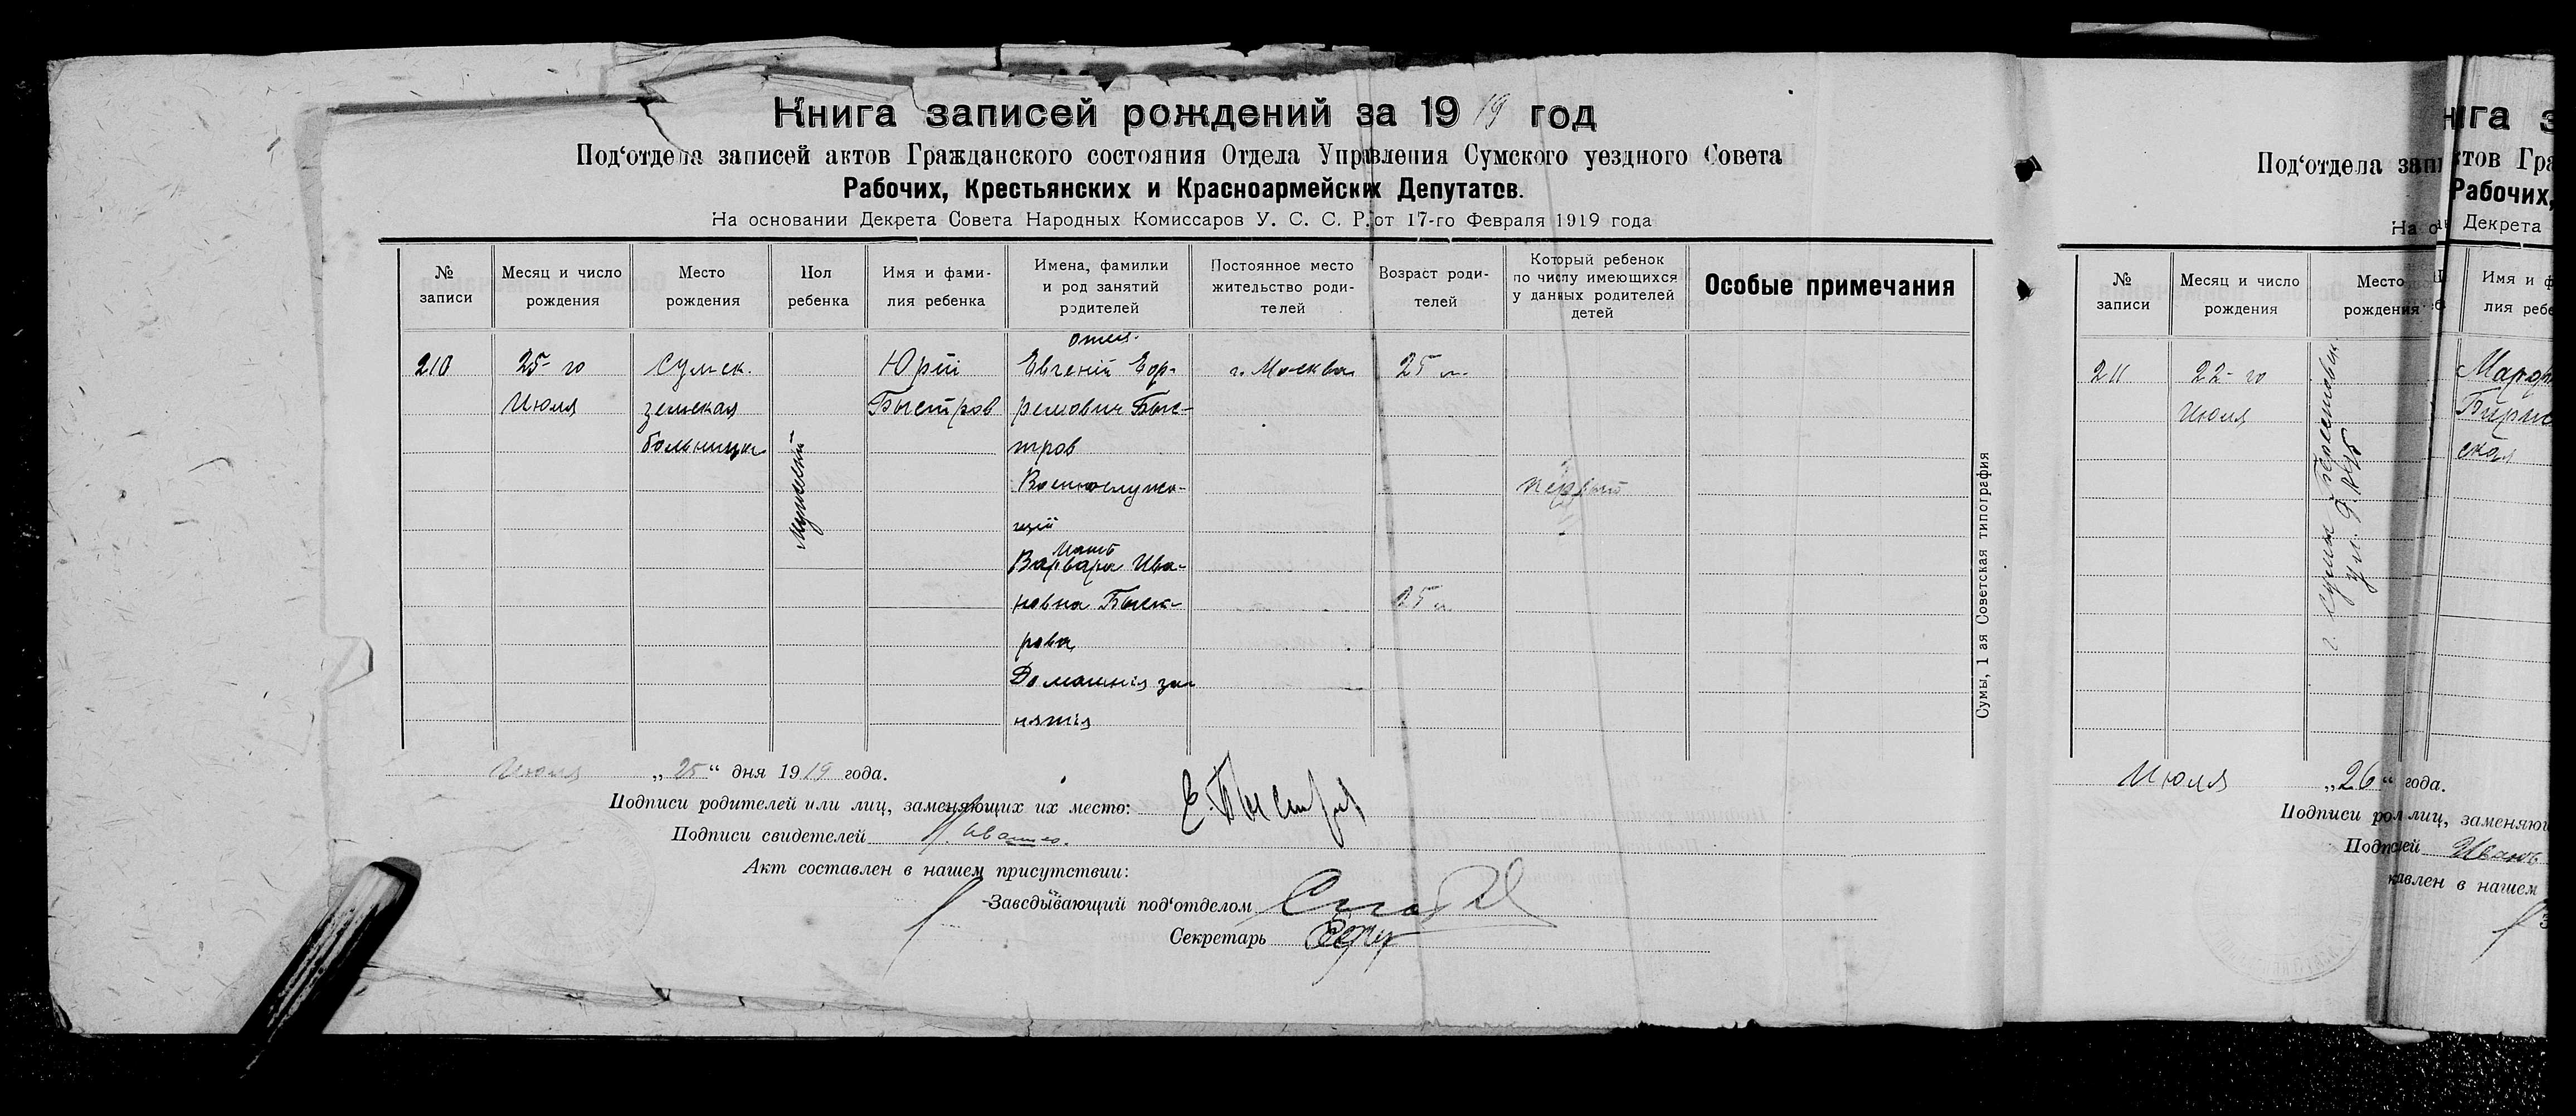 Книга записей рождений за 1919 год
Под‘отдела записей актов Гражданского состояния Отдела Управления Сумского уездного Совета
Рабочих, Крестьянских и Красноармейских Депутатов.
На основании Декрета Совета Народных Комиссаров У. С. С. Р. от 17-го Февраля 1919 года
№ записи
Месяц и число рождения
Место рождения
Пол ребенка
Имя и фами-
лия ребенка
Имена, фамилии
и род занятий
родителей
Постоянное место
жительство роди-
телей
Возраст роди-
телей
Который ребенок
по числу имеющихся
у данных родителей
детей
Особые примечания
210
25-го
Июля
Сумск.
земская
больница
Мужеский
Юрій
Быстров
отец.
Евгеній
Быс-
тров
Военнослужа-
щій
Мать
Варвара Ива-
новна Быст-
рова
Домашнія за-
нятія
г. Москва
25 л.
25 л
первый
Июля „25“ дня 1919 года.
Подписи родителей или лиц, заменяющих их место: Е. Быстров
Подписи свидетелей
Акт составлен в нашем присутствии:
Заведывающий под‘отделом
Секретарь
Сумы, 1 ая Советская типография
нига з
Под‘отдела зап
ктов Гра
Рабочих,
На о
Декрета
№ записи
Месяц и число рождения
Место рождения
Имя и ф
лия ребе
211
22-го
Июля
г. Сумы
ская
Июля „26“ года.
Подписи ро
лиц, заменяющ
Подп
лей
авлен в нашем